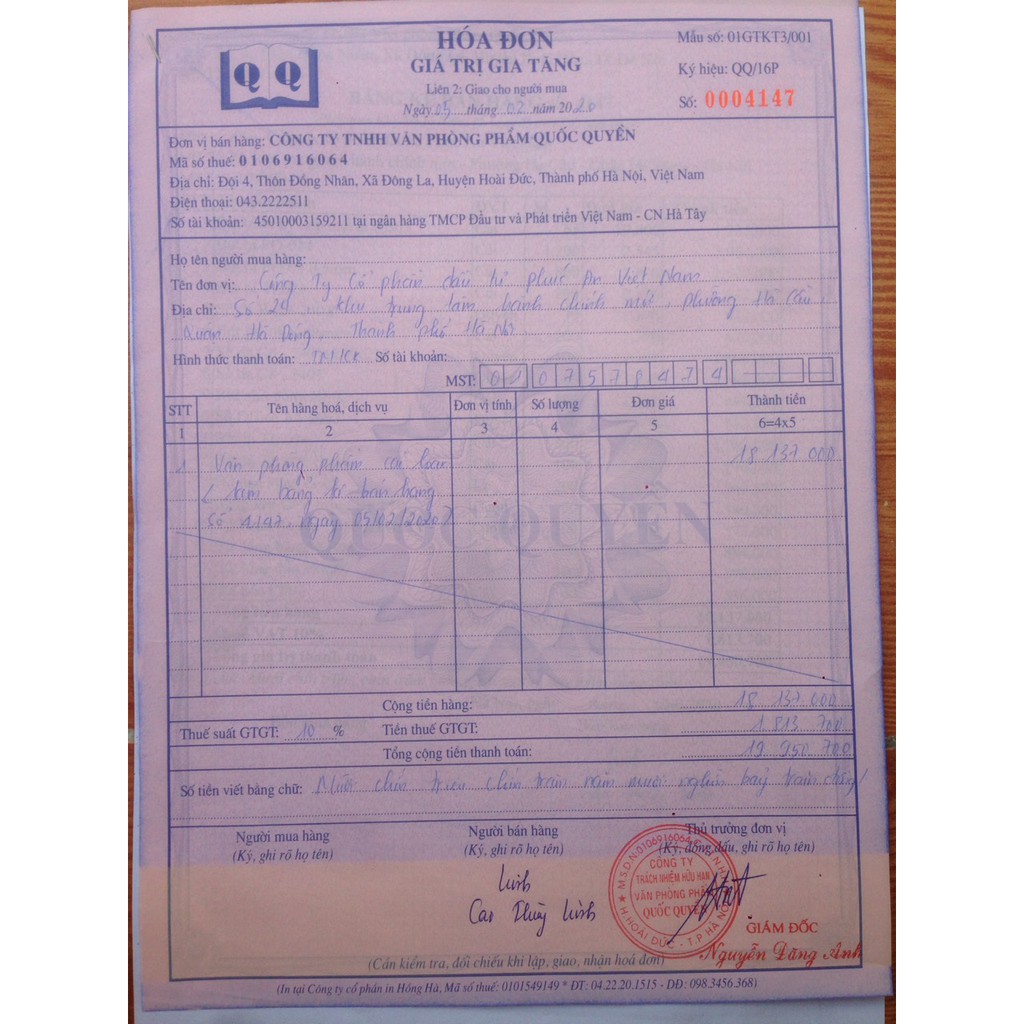 Q Q
HÓA ĐƠN
GIÁ TRỊ GIA TĂNG
Liên 2: Giao cho người mua
Ngày 05 tháng 02 năm 2020
Mẫu số: 01GTKT3/001
Ký hiệu: QQ/16P
Số: 0004147
Đơn vị bán hàng: CÔNG TY TNHH VĂN PHÒNG PHẨM QUỐC QUYỀN
Mã số thuế: 0106916064
Địa chỉ: Đội 4, Thôn Đồng Nhân, Xã Đông La, Huyện Hoài Đức, Thành phố Hà Nội, Việt Nam
Điện thoại: 043.2222511
Số tài khoản: 45010003159211 tại ngân hàng TMCP Đầu tư và Phát triển Việt Nam - CN Hà Tây
Họ tên người mua hàng:
Tên đơn vị: Công Ty Cổ phần đầu tư phúc An Việt Nam
Địa chỉ: Số 24 khu trung tâm hành chính mới, phường Hà Cầu,
Quận Hà Đông, Thành phố Hà Nội
Hình thức thanh toán: TM/CK Số tài khoản:
MST: 0 0 7 5 7 8 4 7 4
STT Tên hàng hoá, dịch vụ Đơn vị tính Số lượng Đơn giá Thành tiền
1 2 3 4 5 6=4x5
1 Văn phòng phẩm các loại 18 137 000
( kèm bảng kê bán hàng
Số 4147, ngày 05/02/2020)
QUỐC QUYỀN
Cộng tiền hàng: 18 137 000
Thuế suất GTGT: 10 % Tiền thuế GTGT: 1 813 700
Tổng cộng tiền thanh toán: 19 950 700
Số tiền viết bằng chữ: Mười chín triệu chín trăm năm mươi nghìn bảy trăm đồng/
Người mua hàng Người bán hàng Thủ trưởng đơn vị
(Ký, ghi rõ họ tên) (Ký, ghi rõ họ tên) (Ký, đóng dấu, ghi rõ họ tên)
M.S.D.N:0106916064
CÔNG TY
TRÁCH NHIỆM HỮU HẠN
VĂN PHÒNG PHẨM
QUỐC QUYỀN
H.HOÀI ĐỨC - T.P HÀ NỘI
Linh
Cao Thùy Linh
GIÁM ĐỐC
Nguyễn Đăng Anh
(Cần kiểm tra, đối chiếu khi lập, giao, nhận hoá đơn)
(In tại Công ty cổ phần in Hồng Hà, Mã số thuế: 0101549149 * ĐT: 04.22.20.1515 - DĐ: 098.3456.368)